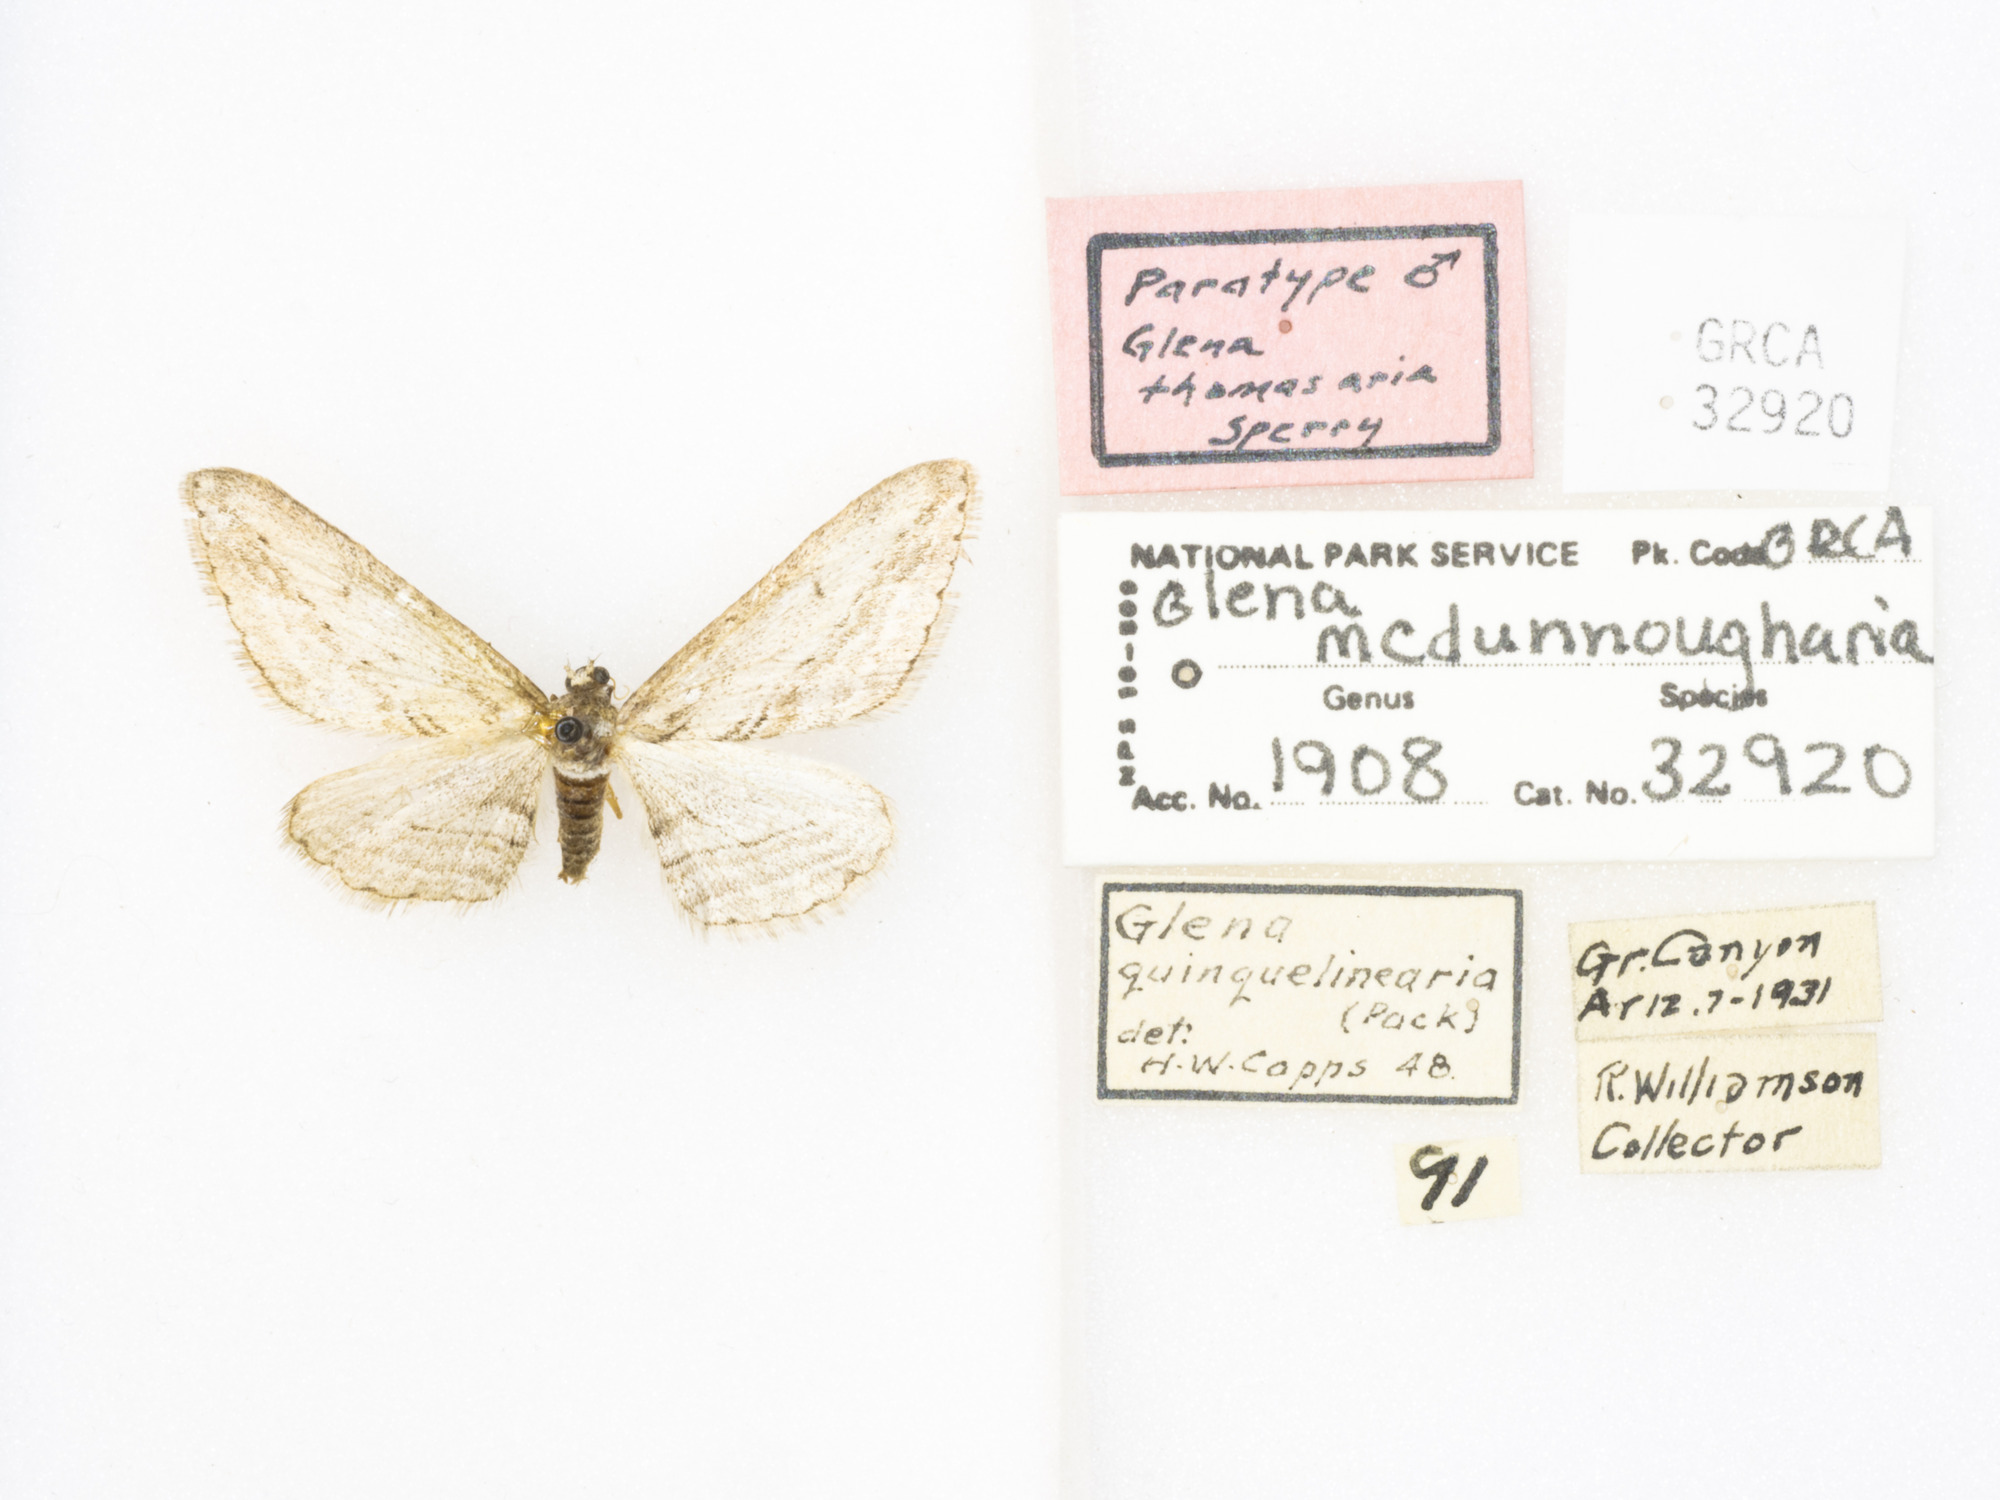 Paratype ♂
Glena
thomasaria
Sperry
GRCA
32920
NATIONAL PARK SERVICE Pk. Code GRCA
Glena
mcdunnougharia
Genus Species
Acc. No. 1908 Cat. No. 32920
Glena
quinquelinearia
(Pack)
det:
H.W. Capps 48.
Gr. Canyon
Ariz. 7-1931
R. Williamson
Collector
91